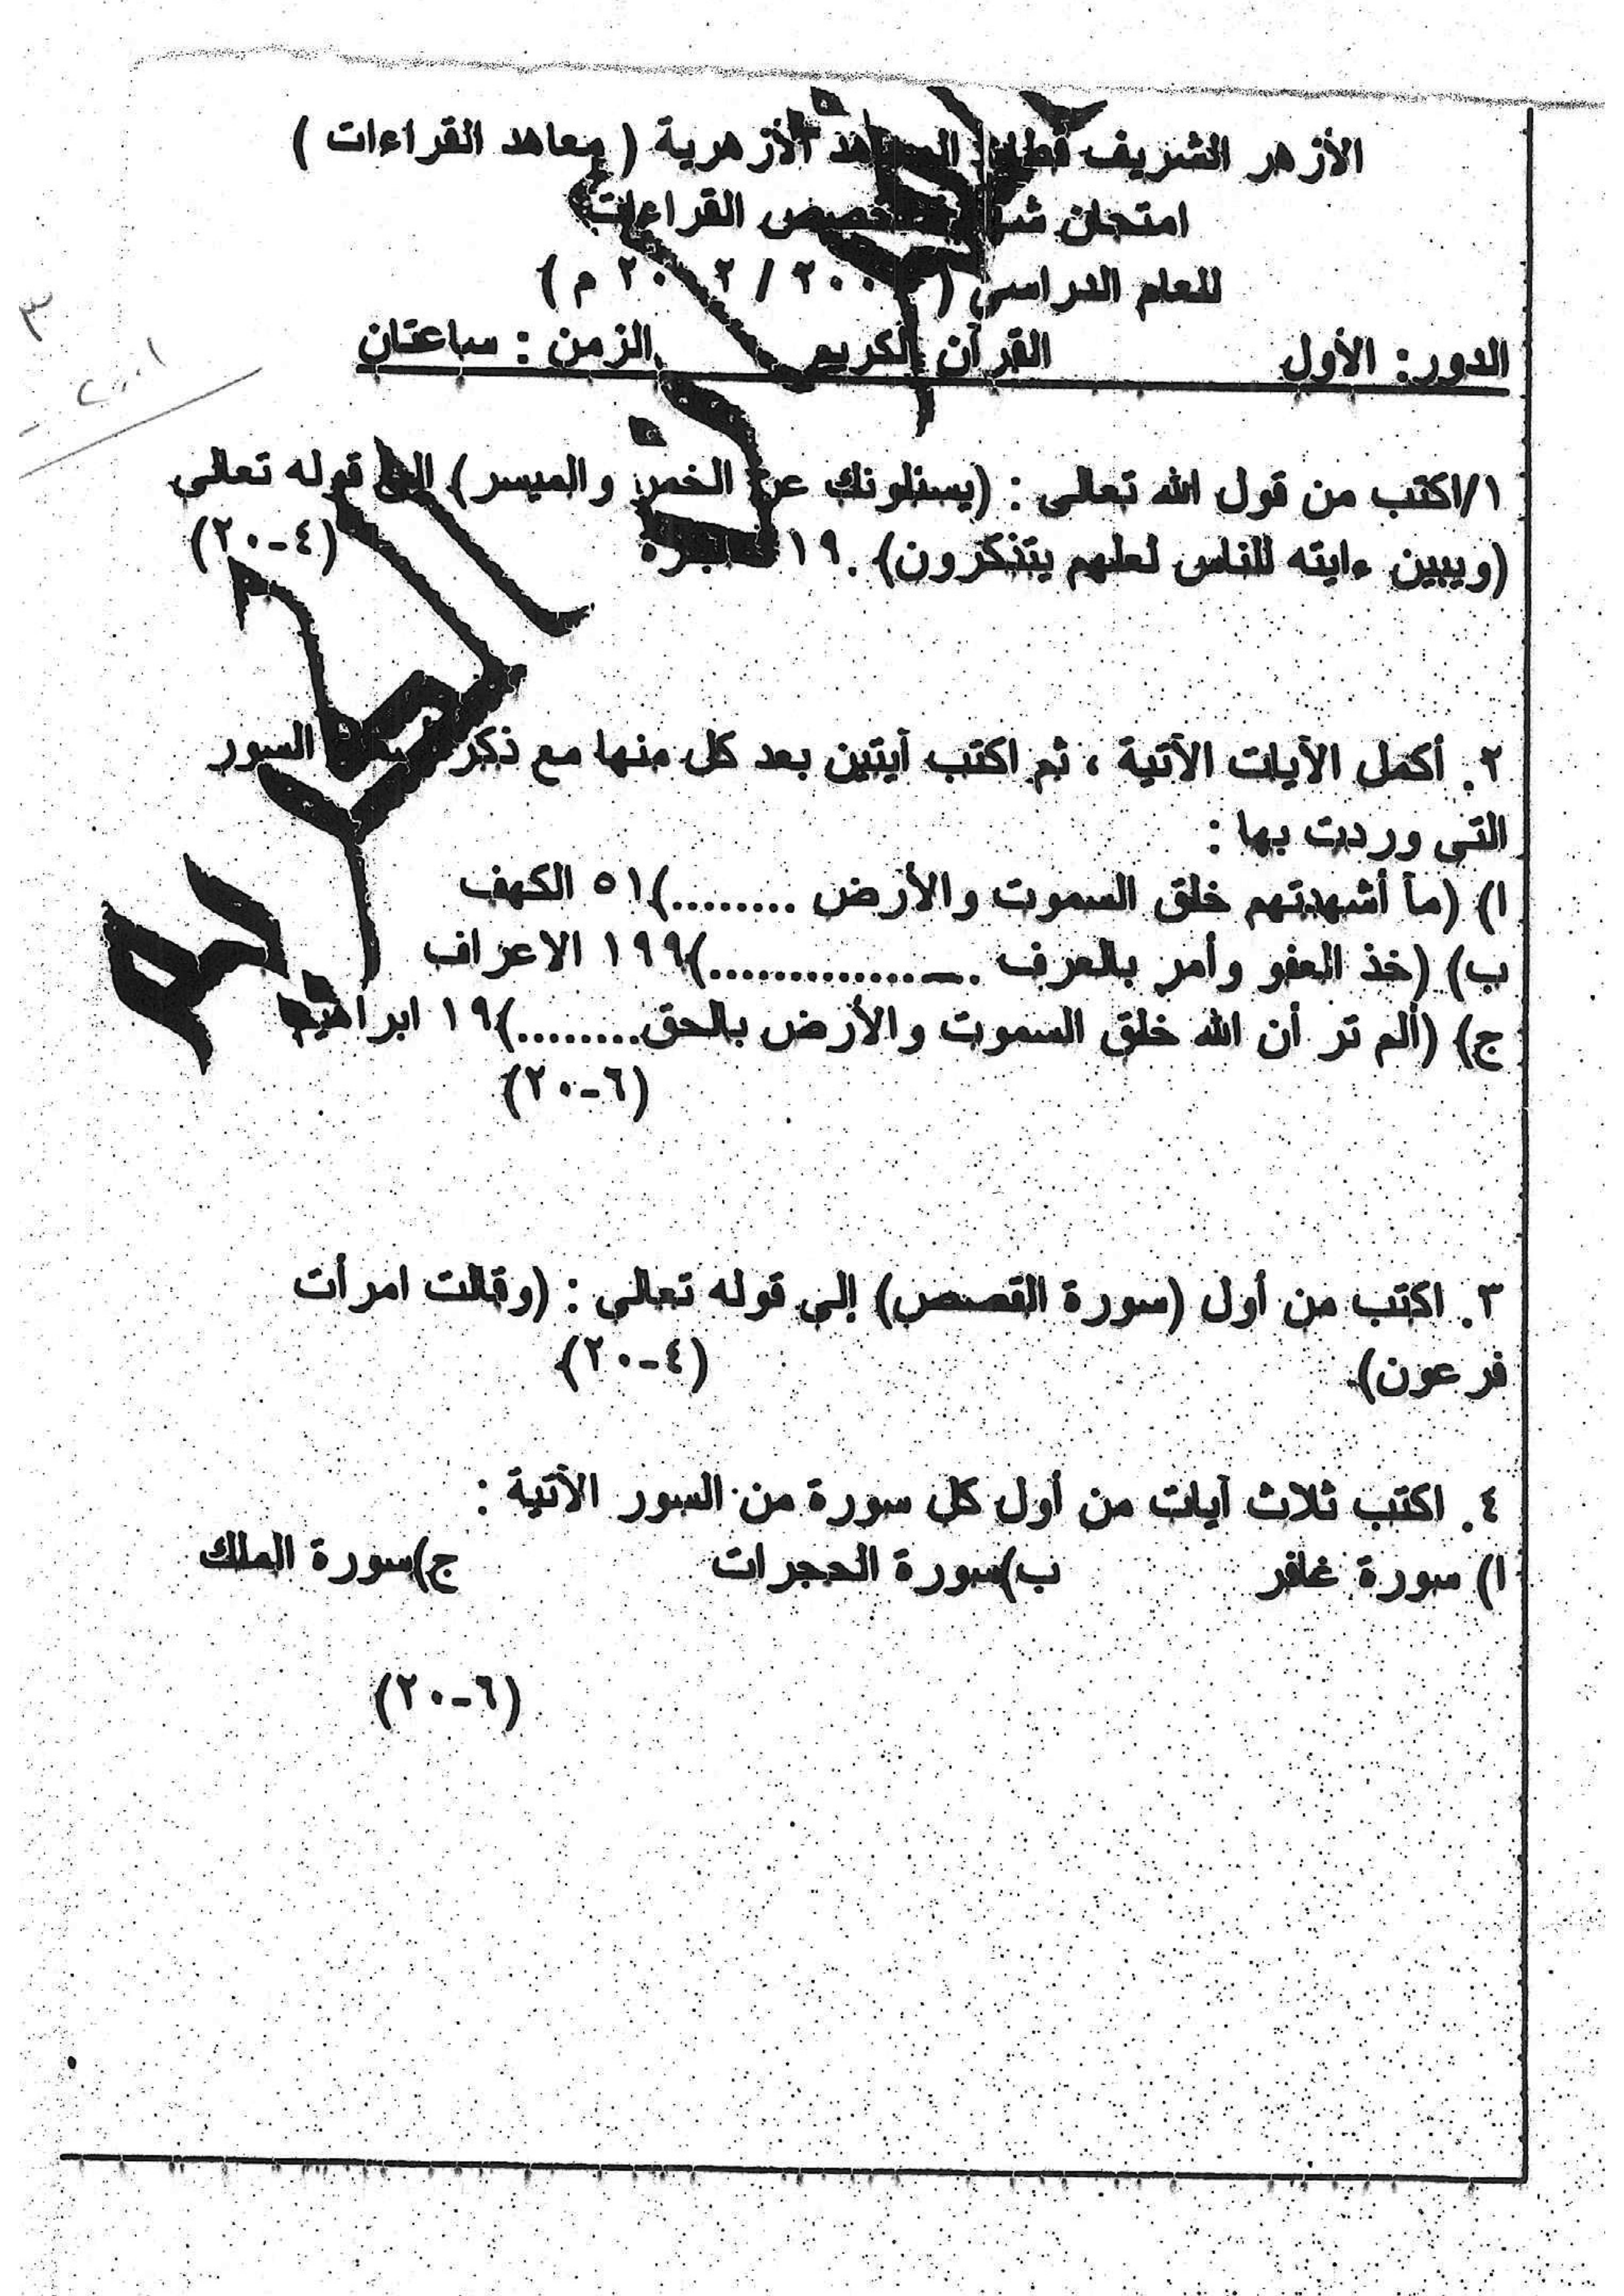 الأزهر الشريف قطاع المعاهد الأزهرية ( معاهد القراءات )
امتحان تخصص القراءات
للعام الدراسي ( م )
الدور: الأول القرآن الكريم الزمن : ساعتان
٣
١/اكتب من قول الله تعالى : (يسئلونك عن الخمر والميسر) الى قوله تعالى
(ويبين ءايته للناس لعلهم يتذكرون). (٤-٢٠)
٢. أكمل الآيات الآتية ، ثم اكتب آيتين بعد كل منها مع ذكر السور
التى وردت بها :
ا) (مآ أشهدتهم خلق السموت والأرض .........)٥١ الكهف
ب) (خذ العفو وأمر بالعرف ................)١٩٩ الاعراف
ج) (ألم تر أن الله خلق السموت والأرض بالحق.........)١٩ ابراهيم
(٦-٢٠)
٣. اكتب من أول (سورة القصص) إلى قوله تعالى : (وقالت امرأت
فرعون). (٤-٢٠)
٤. اكتب ثلاث آيات من أول كل سورة من السور الآتية :
ا) سورة غافر ب)سورة الحجرات ج)سورة الملك
(٦-٢٠)